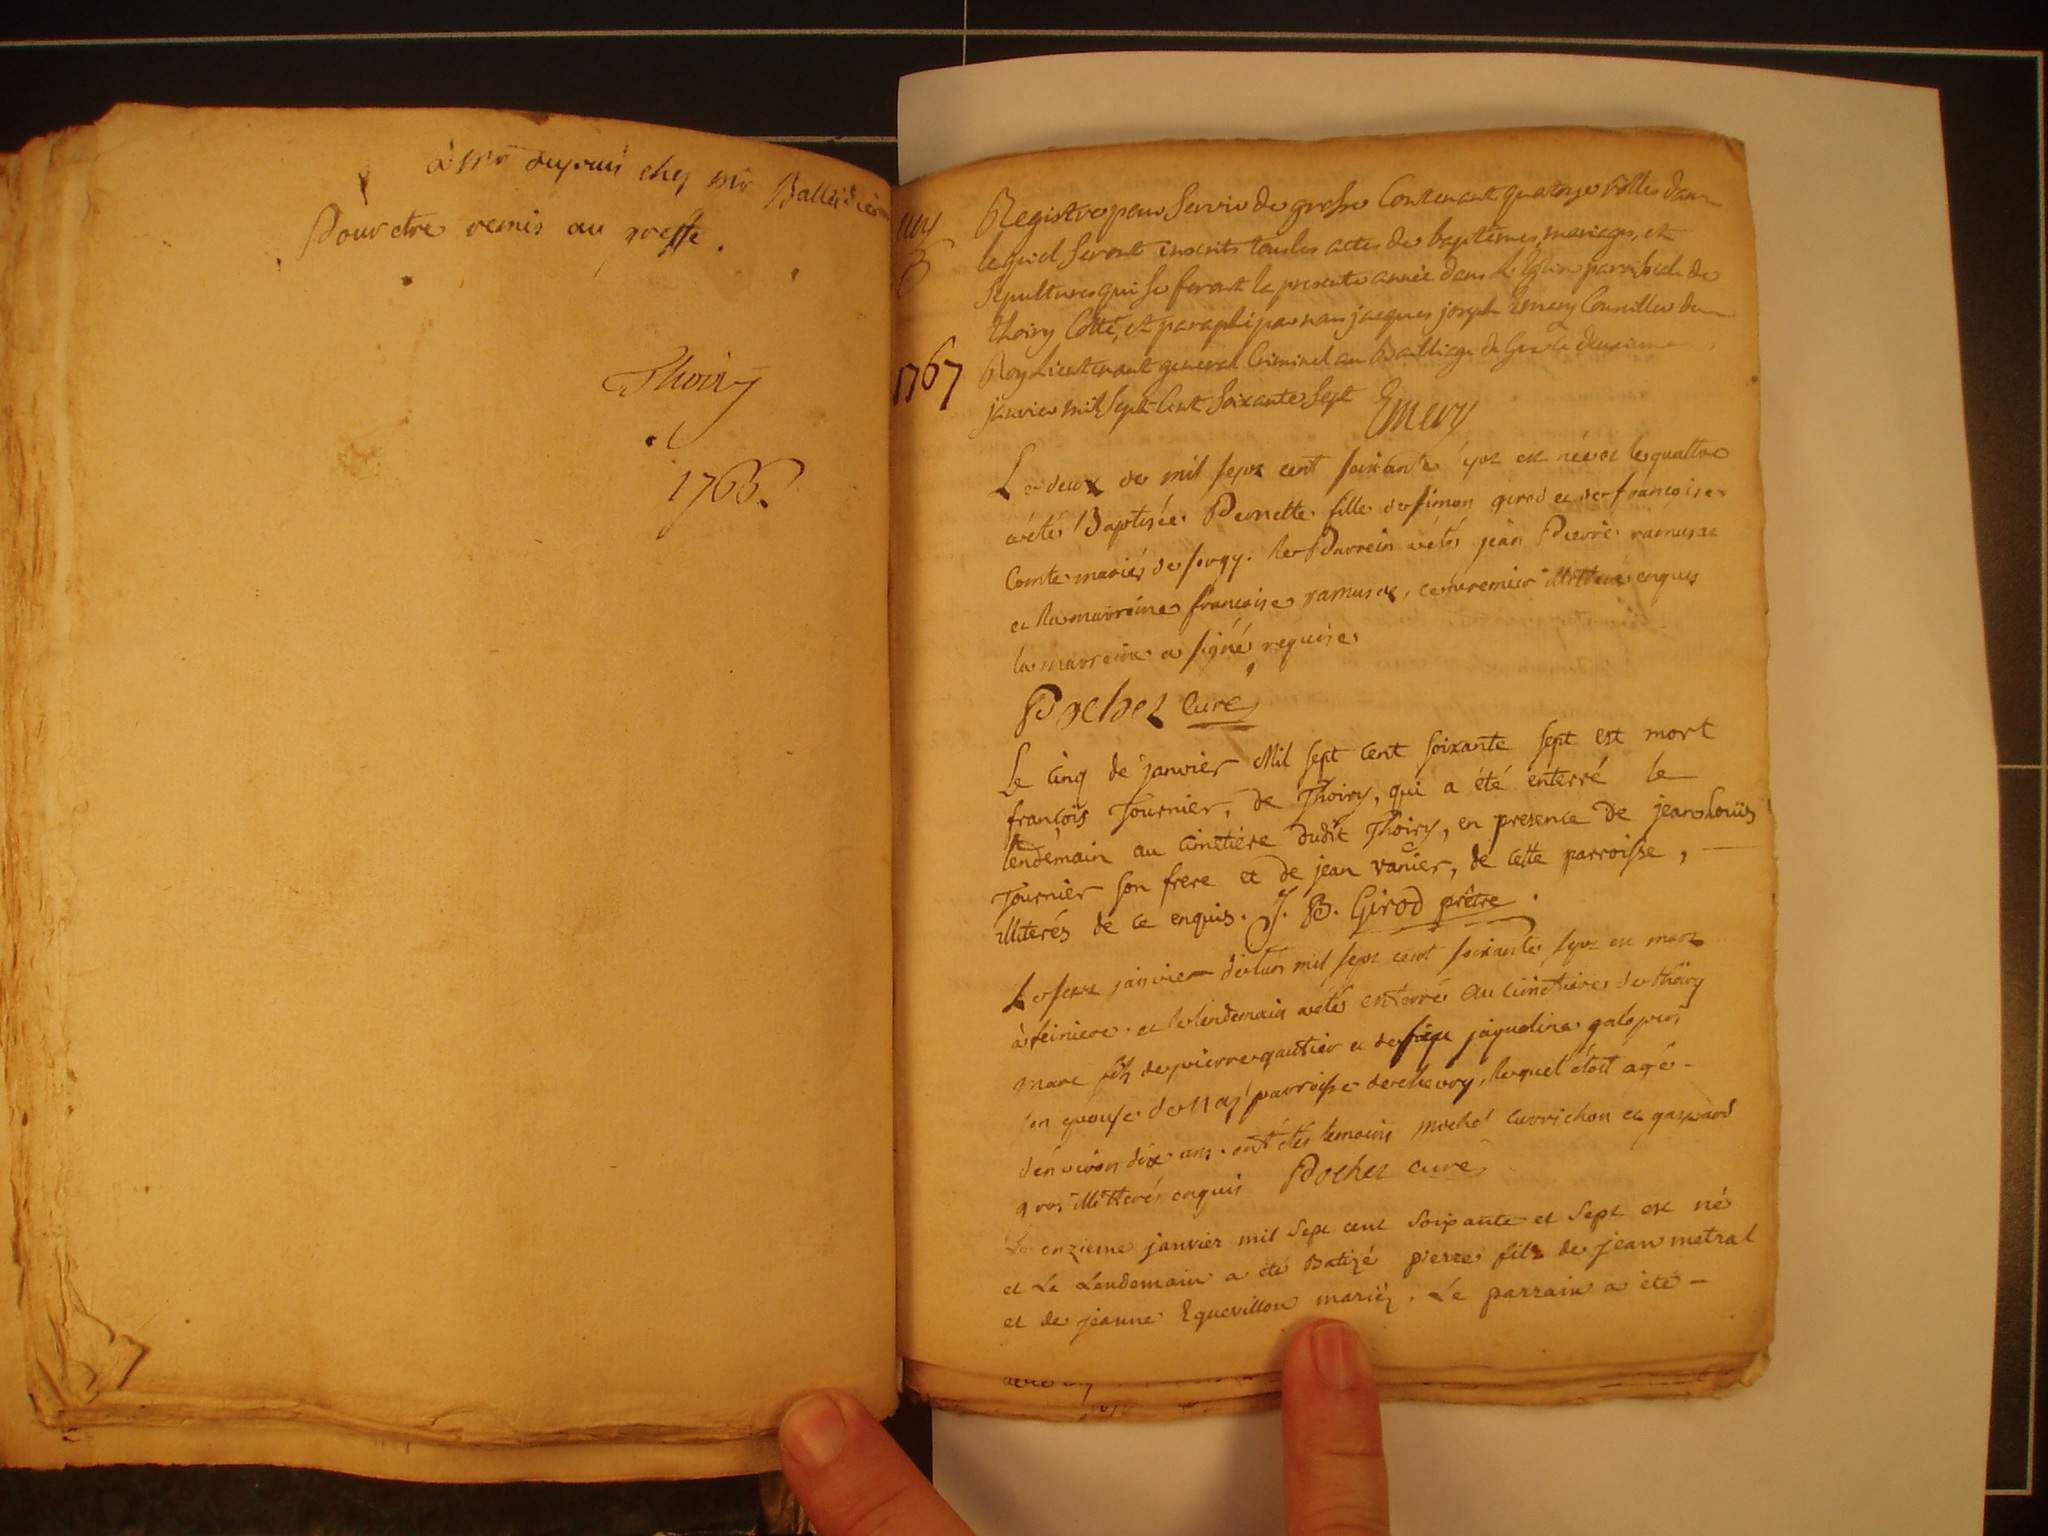 à Mr dupuis chez Mr
Pour etre remis au greffe.
Thoiry
1766.
1767
Registre pour Servir de grosse Contenant quatorze rolles dans
lequel Seront inscrits tous les actes de baptêmes, mariages, et
Sépultures qui se feront la presente année dans L'Eglise parroissiale de
thoiry Cotté, et paraphé par nous jacques joseph Emery Conseiller du
Roy Lieutenant general Criminel au Bailliage de Gex le deuxieme
janvier mil Sept Cent Soixante Sept Emery
Le deux de mil sept cent soixante sept est née et le quattre
a été Baptisée Pernette fille de simon girod et de françoise
Comte mariés de sergy. le Parrein a été jean Pierre ramusat
et la marreine françoise ramusat, ce premier illitteré enquis
la marreine a signé requise
Pochet curé
Le cinq de janvier Mil sept cent soixante sept est mort
françois Tournier, de Thoiry, qui a été enterré le
lendemain au cimetière dudit Thoiry, en presence de jean Loüis
Tournier son frere et de jean vanier, de cette parroisse,
illiterés de ce enquis. J. B. Girod prêtre.
Le janvier mil sept cent soixante sept est mort
à et le lendemain a été enterré au cimetiere de thoiry
marc fils de pierre gautier et de feue jaqueline galopin
son epouse de parroisse de chevry, lequel étoit agé
d'environ dix ans. ont étés temoins michel currichon et gaspard
gros illitterés enquis Pochet curé
Le onzieme janvier mil Sept cent Soixante et Sept est né
et Le Lendemain a été Batizé pierre fils de jean metral
et de jeanne Equevillon mariéz. Le parrain a été